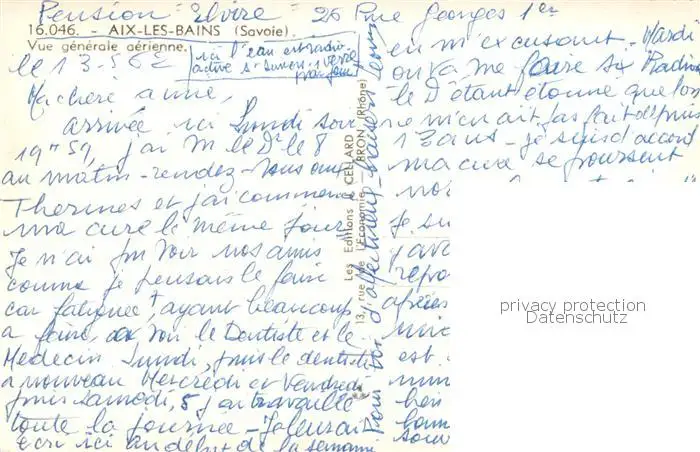 Pension "Elvire" - 26 Rue Georges 1er
16.046. - AIX-LES-BAINS (Savoie).
Vue générale aérienne.
le 13-5-62
ici l'eau est radio-
active s. 1 verre
par jour
Ma chère amie,
arrivée ici Lundi soir
19h 59, j'ai vu le Dr le 8
au matin - rendez-vous aux
Thermes et j'ai commencé
ma cure le même jour
Je n'ai pu voir nos amis
comme je pensais le faire
car fatiguée, ayant beaucoup
à faire, voir le Dentiste et le
Médecin Lundi, puis le dentiste
à nouveau Mercredi et Vendredi
puis Samedi, 5 j'ai travaillé
toute la journée -
écri ici au début de la semaine
Les Editions J. CELLARD
13, rue de l'Economie - BRON (Rhône)
Pour toi d'affectueux baisers
en m'excusant - Mardi
on va me faire six Radios
le Dr étant étonné que l'on
ne m'en ait pas fait depuis
13 ans - je suis d'accord
ma cure se poursuit
Je su
j'ava
repo
après
est
privacy protection
Datenschutz